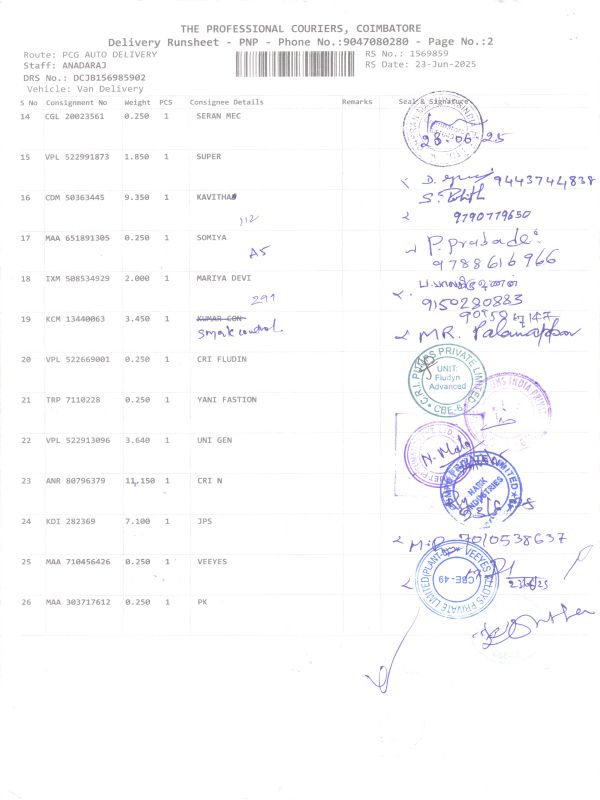 THE PROFESSIONAL COURIERS, COIMBATORE
Delivery Runsheet - PNP - Phone No.:9047080280 - Page No.:2
Route: PCG AUTO DELIVERY
RS No.: 1569859
Staff: ANADARAJ
RS Date: 23-Jun-2025
DRS No.: DCJB156985902
Vehicle: Van Delivery
S No Consignment No Weight PCS Consignee Details Remarks Seal & Signature
14 CGL 20023561 0.250 1 SERAN MEC
15 VPL 522991873 1.850 1 SUPER
D. 9443744838
16 CDM 50363445 9.350 1 KAVITHA
112
9790779650
17 MAA 651891305 0.250 1 SOMIYA
A5
9788616966
18 IXM 508534929 2.000 1 MARIYA DEVI
291
9150280883
19 KCM 13440063 3.450 1 KUMAR CON
smark control
MR. Palanappan
20 VPL 522669001 0.250 1 CRI FLUDIN
C.R.I. PUMPS PRIVATE LIMITED
UNIT:
Fludyn
Advanced
CBE-6
21 TRP 7110228 0.250 1 YANI FASTION
22 VPL 522913096 3.640 1 UNI GEN
N. Mala
23 ANR 80796379 11.150 1 CRI N
PRIVATE LIMITED
NARK
INDUSTRIES
24 KDI 282369 7.100 1 JPS
7010538637
25 MAA 710456426 0.250 1 VEEYES
VEEYES ALLOYS PRIVATE LIMITED (PLANT
CBE-49
23/6/25
26 MAA 303717612 0.250 1 PK